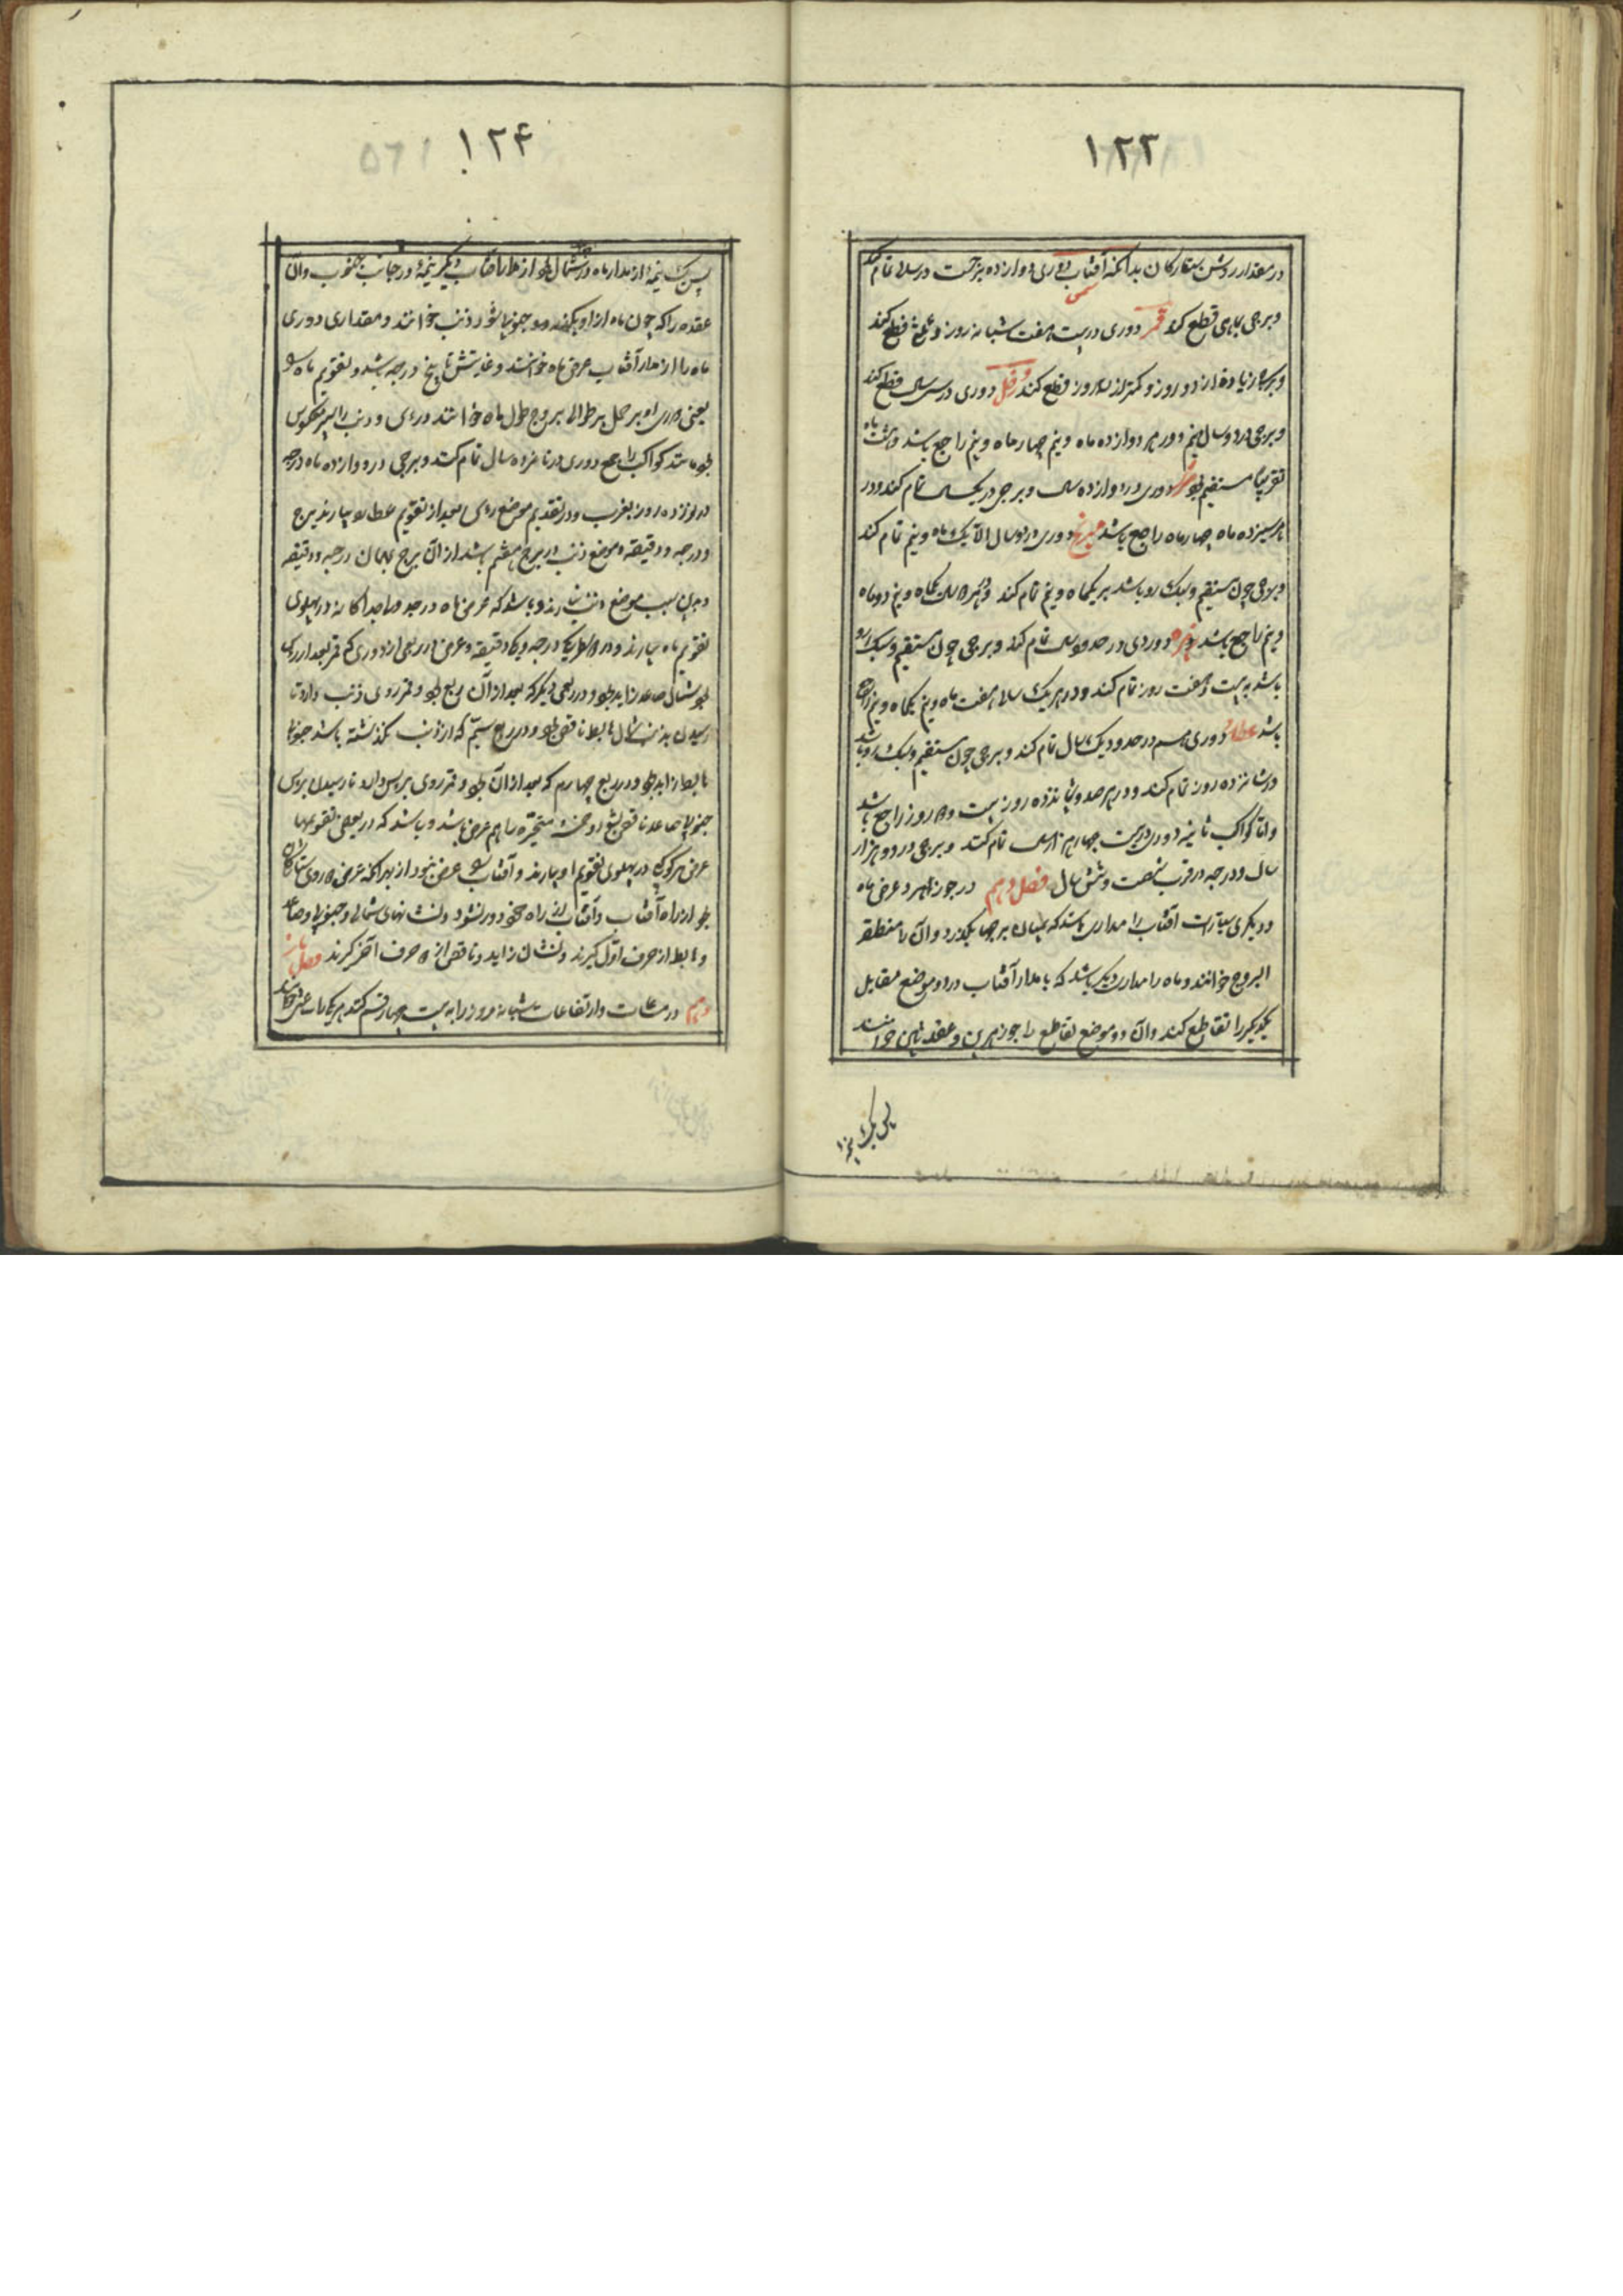 ۱۲۳
در مقدار روش ستارکان بدانکه آفتاب دوری دوازده برجست در سالی تمام کند
شمس
وبرجی بماهی قطع کند قمر دوری در بیست هفت شبانه روز و قطع کند
وبرجی زیاده از دو روز و کمتر از سه روز قطع کند زحل دوری در سی سال قطع کند
وبرجی در دو سال نیم و در هر دوازده ماه و نیم چهار ماه و نیم راجع باشد و هشت ماه
تقریبا مستقیم بود دوری در دوازده سال و برجی در یکسال تمام کند و در
هر سیزده ماه چهار ماه راجع باشد مریخ دوری در دو سال الا یک ماه و نیم تمام کند
وبرجی چون مستقیم و سبک رو باشد بر یکماه و نیم تمام کند و دو ماه
و نیم راجع باشد زهره دوری در حدود سال تمام کند و برجی چون مستقیم و سبک رو
باشد به بیست و هفت روز تمام کند و در هر یک سال هفت ماه و نیم یکماه و نیم راجع
باشد عطارد دوری هم در حدود یک سال تمام کند و برجی چون مستقیم و سبک رو باشد
در شانزده روز تمام کند و در هر صد و شانزده روز بیست و دو روز راجع باشد
و اما کواکب ثابته دوری در بیست چهار هزار سال تمام کنند و برجی در دو هزار
سال و درجه در قرب شصت و شش سال فصل دهم در جوزاهر و عرض ماه
و دیگری سیارات آفتاب را مداری باشد که بمیان برجها بگذرد و آن را منطقة
البروج خوانند و ماه را مداری دیگر باشد که با مدار آفتاب در دو موضع مقابل
یکدیگر را تقاطع کند و آن دو موضع تقاطع را جوزهرین و عقدتین خوانند
پس یک نیمه
۱۲۴
پس یک نیمه از مدار ماه در شمال بود از مدار آفتاب و دیگر نیمه در جانب جنوب و آن
عقده را که چون ماه از او بگذرد جنوبی شود ذنب خوانند و مقداری دوری
ماه را از مدار آفتاب عرض ماه خوانند و غایتش تا پنج درجه باشد و تقویم ماه
یعنی دوری او بر حمل بر توالی بروج طول ماه خوانند و رأس و ذنب را سیر معکوس
بود مانند کواکب راجع دوری در نوزده سال تمام کنند و برجی در دوازده ماه و درجه
در نوزده روز بقرب و در تقدیم موضع رأس بعد از تقویم عطارد بیارند برج
و درجه و دقیقه و موضع ذنب در برج هفتم باشد از آن برج بهمان درجه و دقیقه
و بدین سبب موضع ذنب نیارند و باشد که عرض ماه در جدول جداگانه در پهلوی
تقویم ماه بیارند و درجه و دقیقه و عرض در ربعی از دوری که قمر بعد از رأس
بود شمالی صاعد زاید بود و در ربعی دیگر که بعد از آن ربع بود و قمر روی ذنب دارد تا
رسیدن بذنب شمالی هابط ناقص بود و در ربع سیم که از ذنب گذشته باشد جنوبی
هابط زاید بود و در ربع چهارم که بعد از آن بود و قمر روی برأس دارد تا رسیدن برأس
جنوبی صاعد ناقص بود و خمسه متحیره را هم عرض باشد و باشد که در بعضی تقویمها
عرض هر کوکبی در پهلوی تقویم او بیارند و آفتاب عرض نبود از بهر آنکه عرض دوری ستاره
بود از راه آفتاب و آفتاب از راه خود دور نشود و نشانهای شمالی و جنوبی و صاعد
و هابط از حرف اول گیرند و نشان زاید و ناقص از دو حرف آخر گیرند فصل یاز
دهم در ساعات و ارتفاعات شبانه روز را به بیست چهار قسم کنند هر یک را ساعتی خوانند